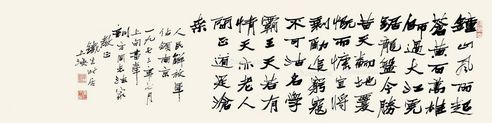 鍾山風雨起
蒼黃百萬雄
師過大江虎
踞龍盤今勝
昔天翻地覆
慨而慷宜將
剩勇追窮寇
不可沽名學
霸王天若有
情天亦老人
間正道是滄
桑
人民解放軍
佔領南京
一九七三年七月
教正
上海